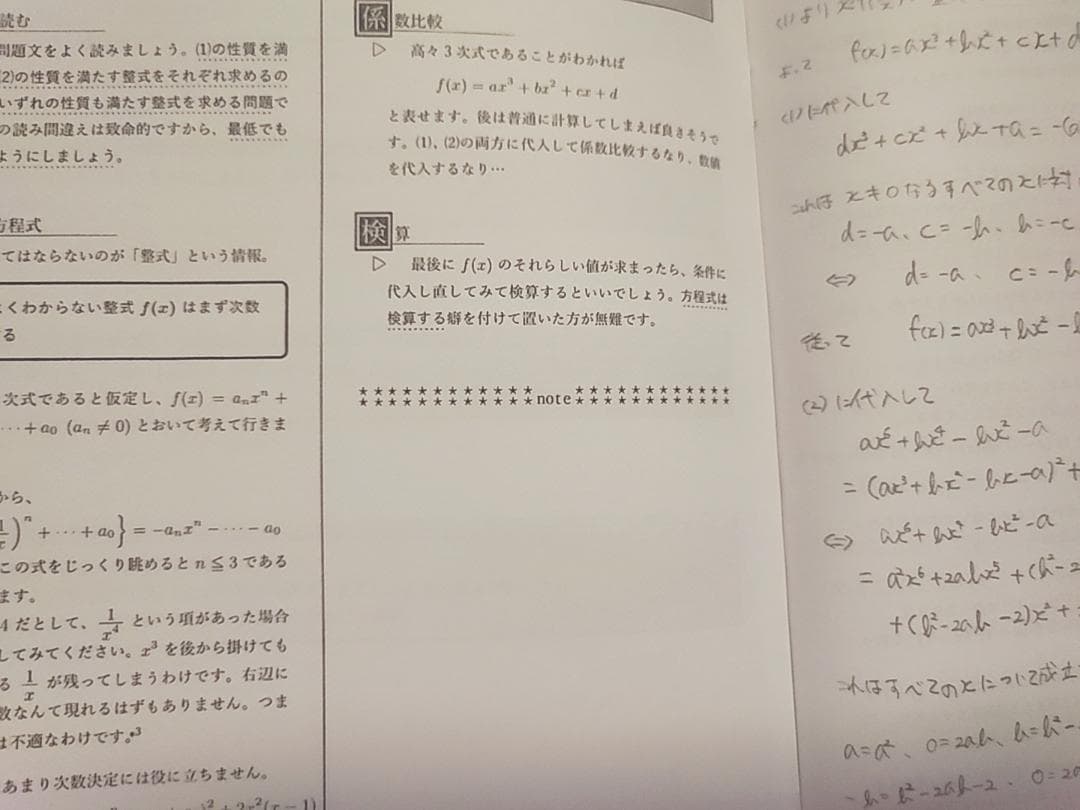 読む
問題文をよく読みましょう。(1)の性質を満
(2)の性質を満たす整式をそれぞれ求めるの
いずれの性質も満たす整式を求める問題で
の読み間違えは致命的ですから、最低でも
ようにしましょう。
方程式
てはならないのが「整式」という情報。
くわからない整式 f(x) はまず次数
る
次式であると仮定し、f(x) = aₙxⁿ +
⋯ + a₀ (aₙ ≠ 0) とおいて考えて行きま
から、
x)ⁿ + ⋯ + a₀} = −aₙxⁿ − ⋯ − a₀
この式をじっくり眺めると n ≦ 3 である
ます。
4 だとして、1/x⁴ という項があった場合
してみてください。x³ を後から掛けても
る 1/x が残ってしまうわけです。右辺に
数なんて現れるはずもありません。つま
は不適なわけです。*3
あまり次数決定には役に立ちません。
)² + 2x²(x−1)
係数比較
▷ 高々3次式であることがわかれば
f(x) = ax³ + bx² + cx + d
と表せます。後は普通に計算してしまえば良さそうで
す。(1)、(2)の両方に代入して係数比較するなり、数値
を代入するなり…
検算
▷ 最後に f(x) のそれらしい値が求まったら、条件に
代入し直してみて検算するといいでしょう。方程式は
検算する癖を付けて置いた方が無難です。
★★★★★★★★★★★★★note★★★★★★★★★★★★★
(1)より
よって f(x) = ax³ + bx² + cx + d
(1)に代入して
dx³ + cx² + bx + a = −(a
これは x ≠ 0 なるすべてのxに対
d = −a、c = −b、b = −c
⇔ d = −a、c = −b
従って f(x) = ax³ + bx² − b
(2)に代入して
ax⁶ + bx⁴ − bx² − a
= (ax³ + bx² − bx − a)² +
⇔ ax⁶ + bx⁴ − bx² − a
= a²x⁶ + 2abx⁵ + (b² − 2
+ (b² − 2ab − 2)x² +
これはすべてのxについて成立
a = a²、0 = 2ab、b = b² −
− b = b² − 2ab − 2、0 = 2a